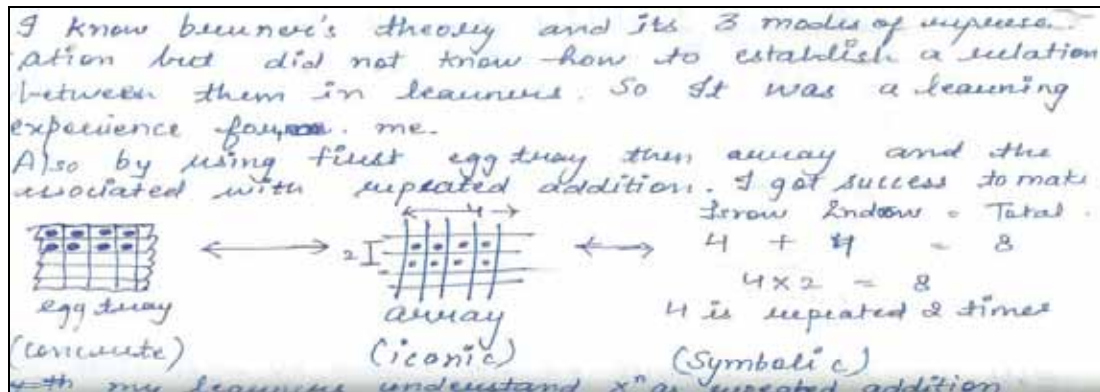 I know bruner's theory and its 3 modes of represe
ation but did not know how to establish a relation
between them in learners. So It was a learning
experience for me.
Also by using first egg tray then array and the
associated with repeated addition. I got success to make
4
Isrow 2ndrow = Total.
2
4 + 4 = 8
4 x 2 = 8
egg tray
array
4 is repeated 2 times
(concrete)
(iconic)
(Symbolic)
my learners understand x^n as repeated addition